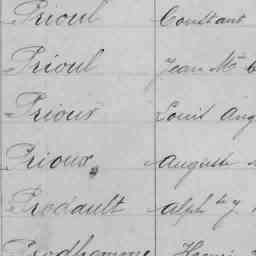 Prioul Constant
Prioul Jean Mie
Prioux Louis Aug
Prioux Auguste
Prodault Alph
Prodhomme Henri